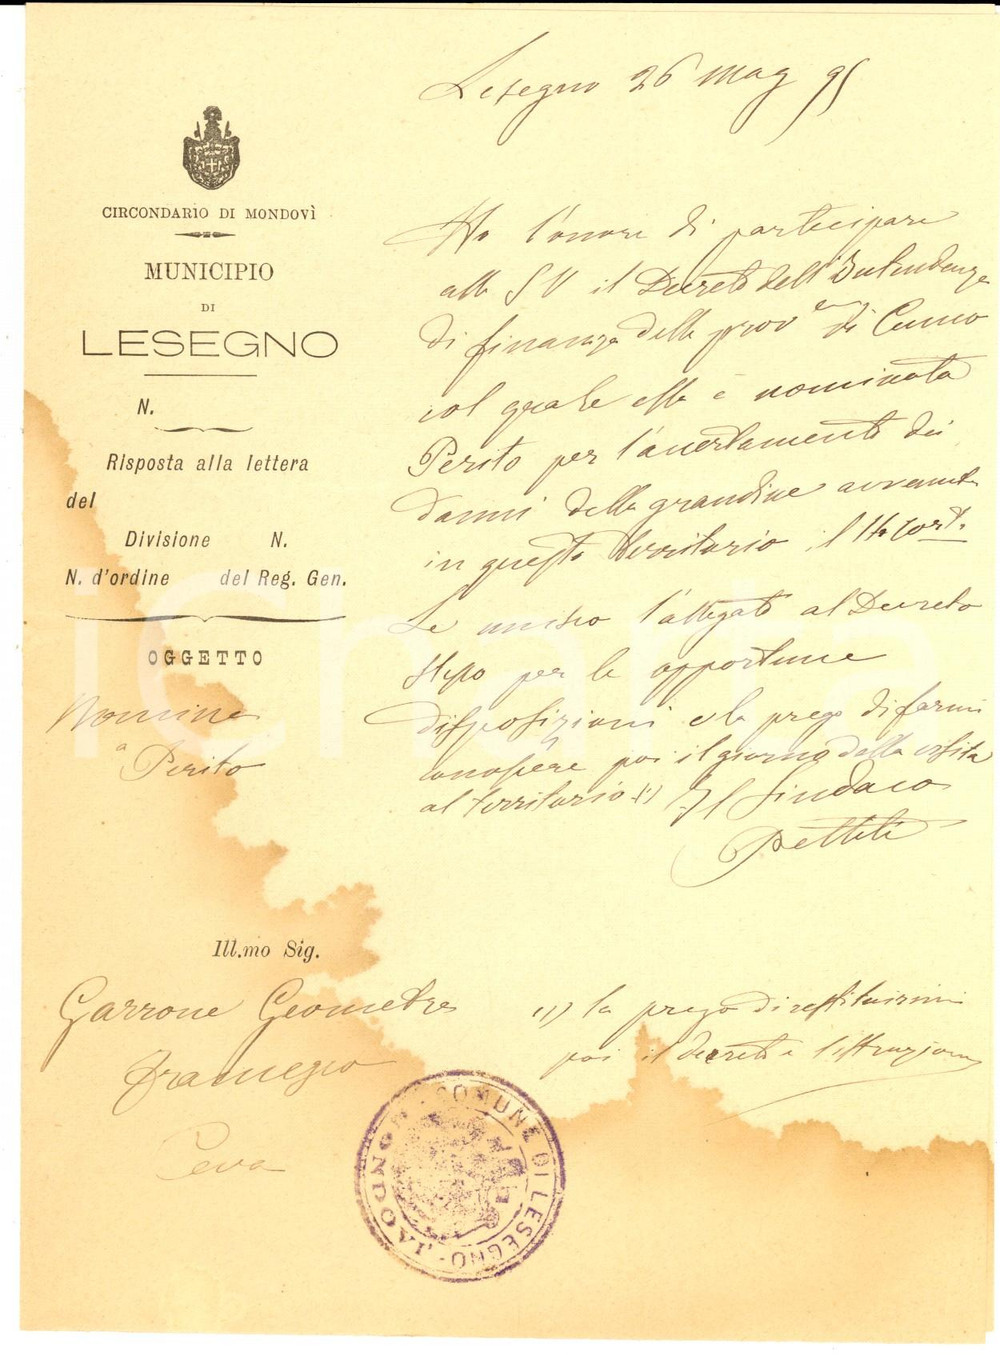 Lesegno 26 mag 95
CIRCONDARIO DI MONDOVÌ
MUNICIPIO
DI
LESEGNO
N.
Risposta alla lettera
del
Divisione N.
N. d'ordine del Reg. Gen.
OGGETTO
Nomina
a Perito
Ill.mo Sig.
Garrone Geometra
Francesco
Ceva
Ho l'onore di partecipare
alla SV il Decreto dell'Intendenza
di finanza della prov di Cuneo
col quale ella è nominata
Perito per l'accertamento dei
danni della grandine avvenuta
in questo territorio il 14 corr.
Le unisco l'allegato al Decreto
stesso per le opportune
disposizioni e la prego di farmi
conoscere poi il giorno della visita
al territorio (1) Il Sindaco
Pettiti
(1) la prego di restituirmi
poi il decreto e l'istruzione
COMUNE DI LESEGNO · MONDOVÌ ·
iCharta